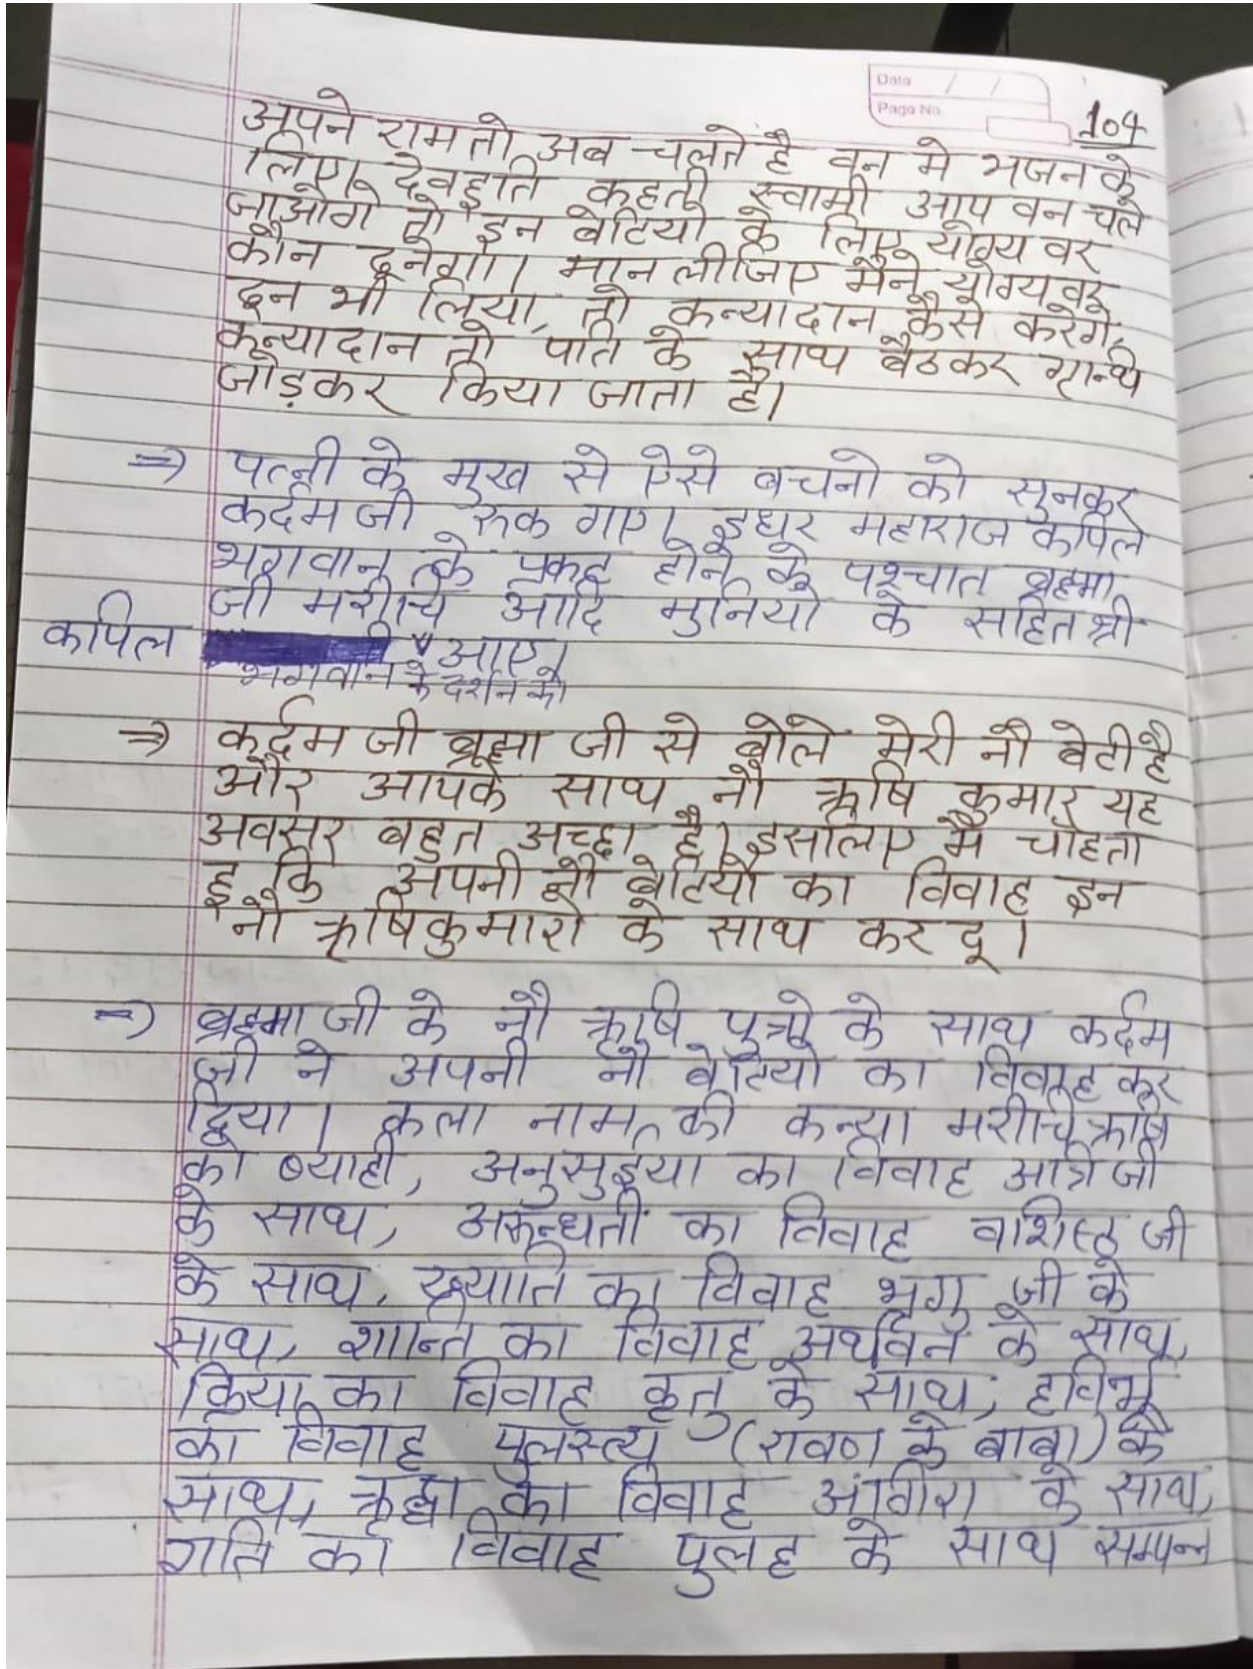 Data / /
Page No.
104
अपने राम तो अब चलते है वन मे भजन के
लिए, देवहुति कहती स्वामी आप वन चले
जाओगे तो इन बेटियो के लिए योग्य वर
कौन ढूनेगा। मान लीजिए मैने योग्य वर
ढून भी लिया, तो कन्यादान कैसे करेगे,
कन्यादान तो पति के साथ बैठकर ग्रन्थि
जोड़कर किया जाता है।
⇒ पत्नी के मुख से ऐसे बचनो को सुनकर
कर्दम जी रुक गए। इधर महाराज कपिल
भगवान के प्रकट होने के पश्चात ब्रह्मा
जी मरीचि आदि मुनियो के सहित श्री
कपिल आए।
भगवान के दर्शन को
⇒ कर्दम जी ब्रह्मा जी से बोले मेरी नौ बेटी है
और आपके साथ नौ ऋषि कुमार यह
अवसर बहुत अच्छा है। इसलिए मै चाहता
हू कि अपनी नौ बेटियो का विवाह इन
नौ ऋषिकुमारो के साथ कर दू।
⇒ ब्रह्मा जी के नौ ऋषि पुत्रो के साथ कर्दम
जी ने अपनी नौ बेटियो का विवाह कर
दिया। कला नाम की कन्या मरीचि ऋषि
को ब्याही, अनुसुइया का विवाह अत्रि जी
के साथ, अरुन्धती का विवाह वशिस्ठ जी
के साथ, ख्याति का विवाह भृगु जी के
साथ, शान्ति का विवाह अर्थवन के साथ,
क्रिया का विवाह कृतु के साथ, हविर्भू
का विवाह पुलस्त्य (रावण के बाबा) के
साथ, ऋद्धा का विवाह अंगिरा के साथ,
गति का विवाह पुलह के साथ सम्पन्न